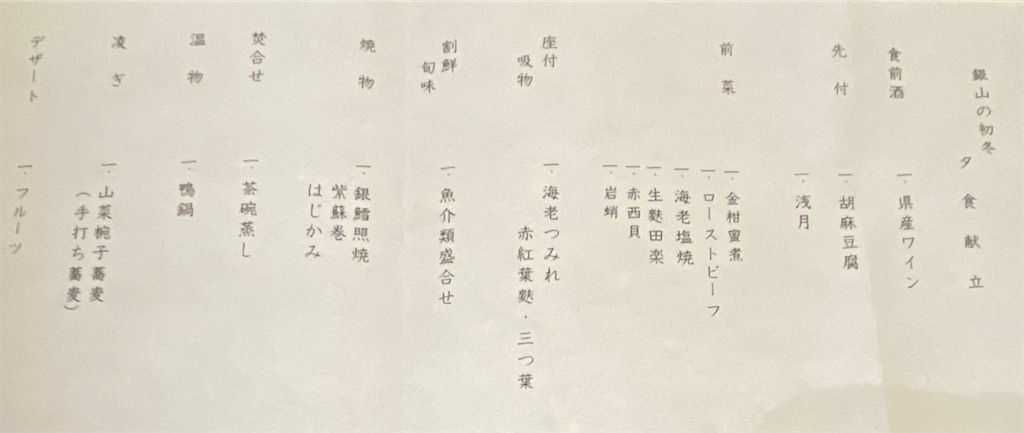 銀山の初冬
夕食献立
食前酒
一.県産ワイン
先付
一.胡麻豆腐
一.浅月
前菜
一.金柑蜜煮
一.ローストビーフ
一.海老塩焼
一.生麩田楽
一.赤西貝
一.岩蛸
座付
吸物
一.海老つみれ
赤紅葉麩.三つ葉
割鮮
旬味
一.魚介類盛合せ
焼物
一.銀鱈照焼
紫蘇巻
はじかみ
焚合せ
一.茶碗蒸し
温物
一.鴨鍋
凌ぎ
一.山菜椀子蕎麦
(手打ち蕎麦)
デザート
一.フルーツ